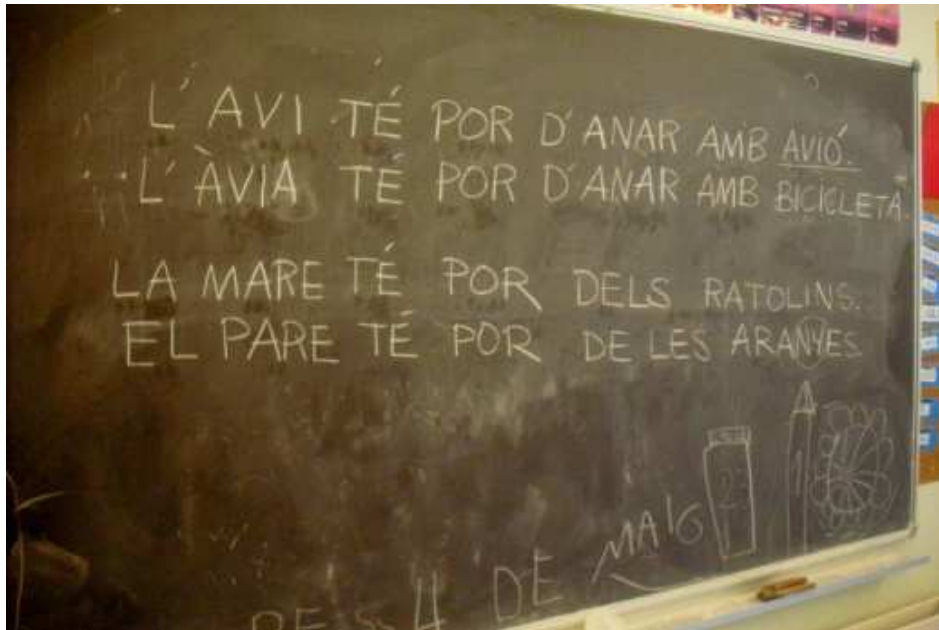 L'AVI TÉ POR D'ANAR AMB AVIÓ.
L'ÀVIA TÉ POR D'ANAR AMB BICICLETA.
LA MARE TÉ POR DELS RATOLINS.
EL PARE TÉ POR DE LES ARANYES
4 DE MAIG